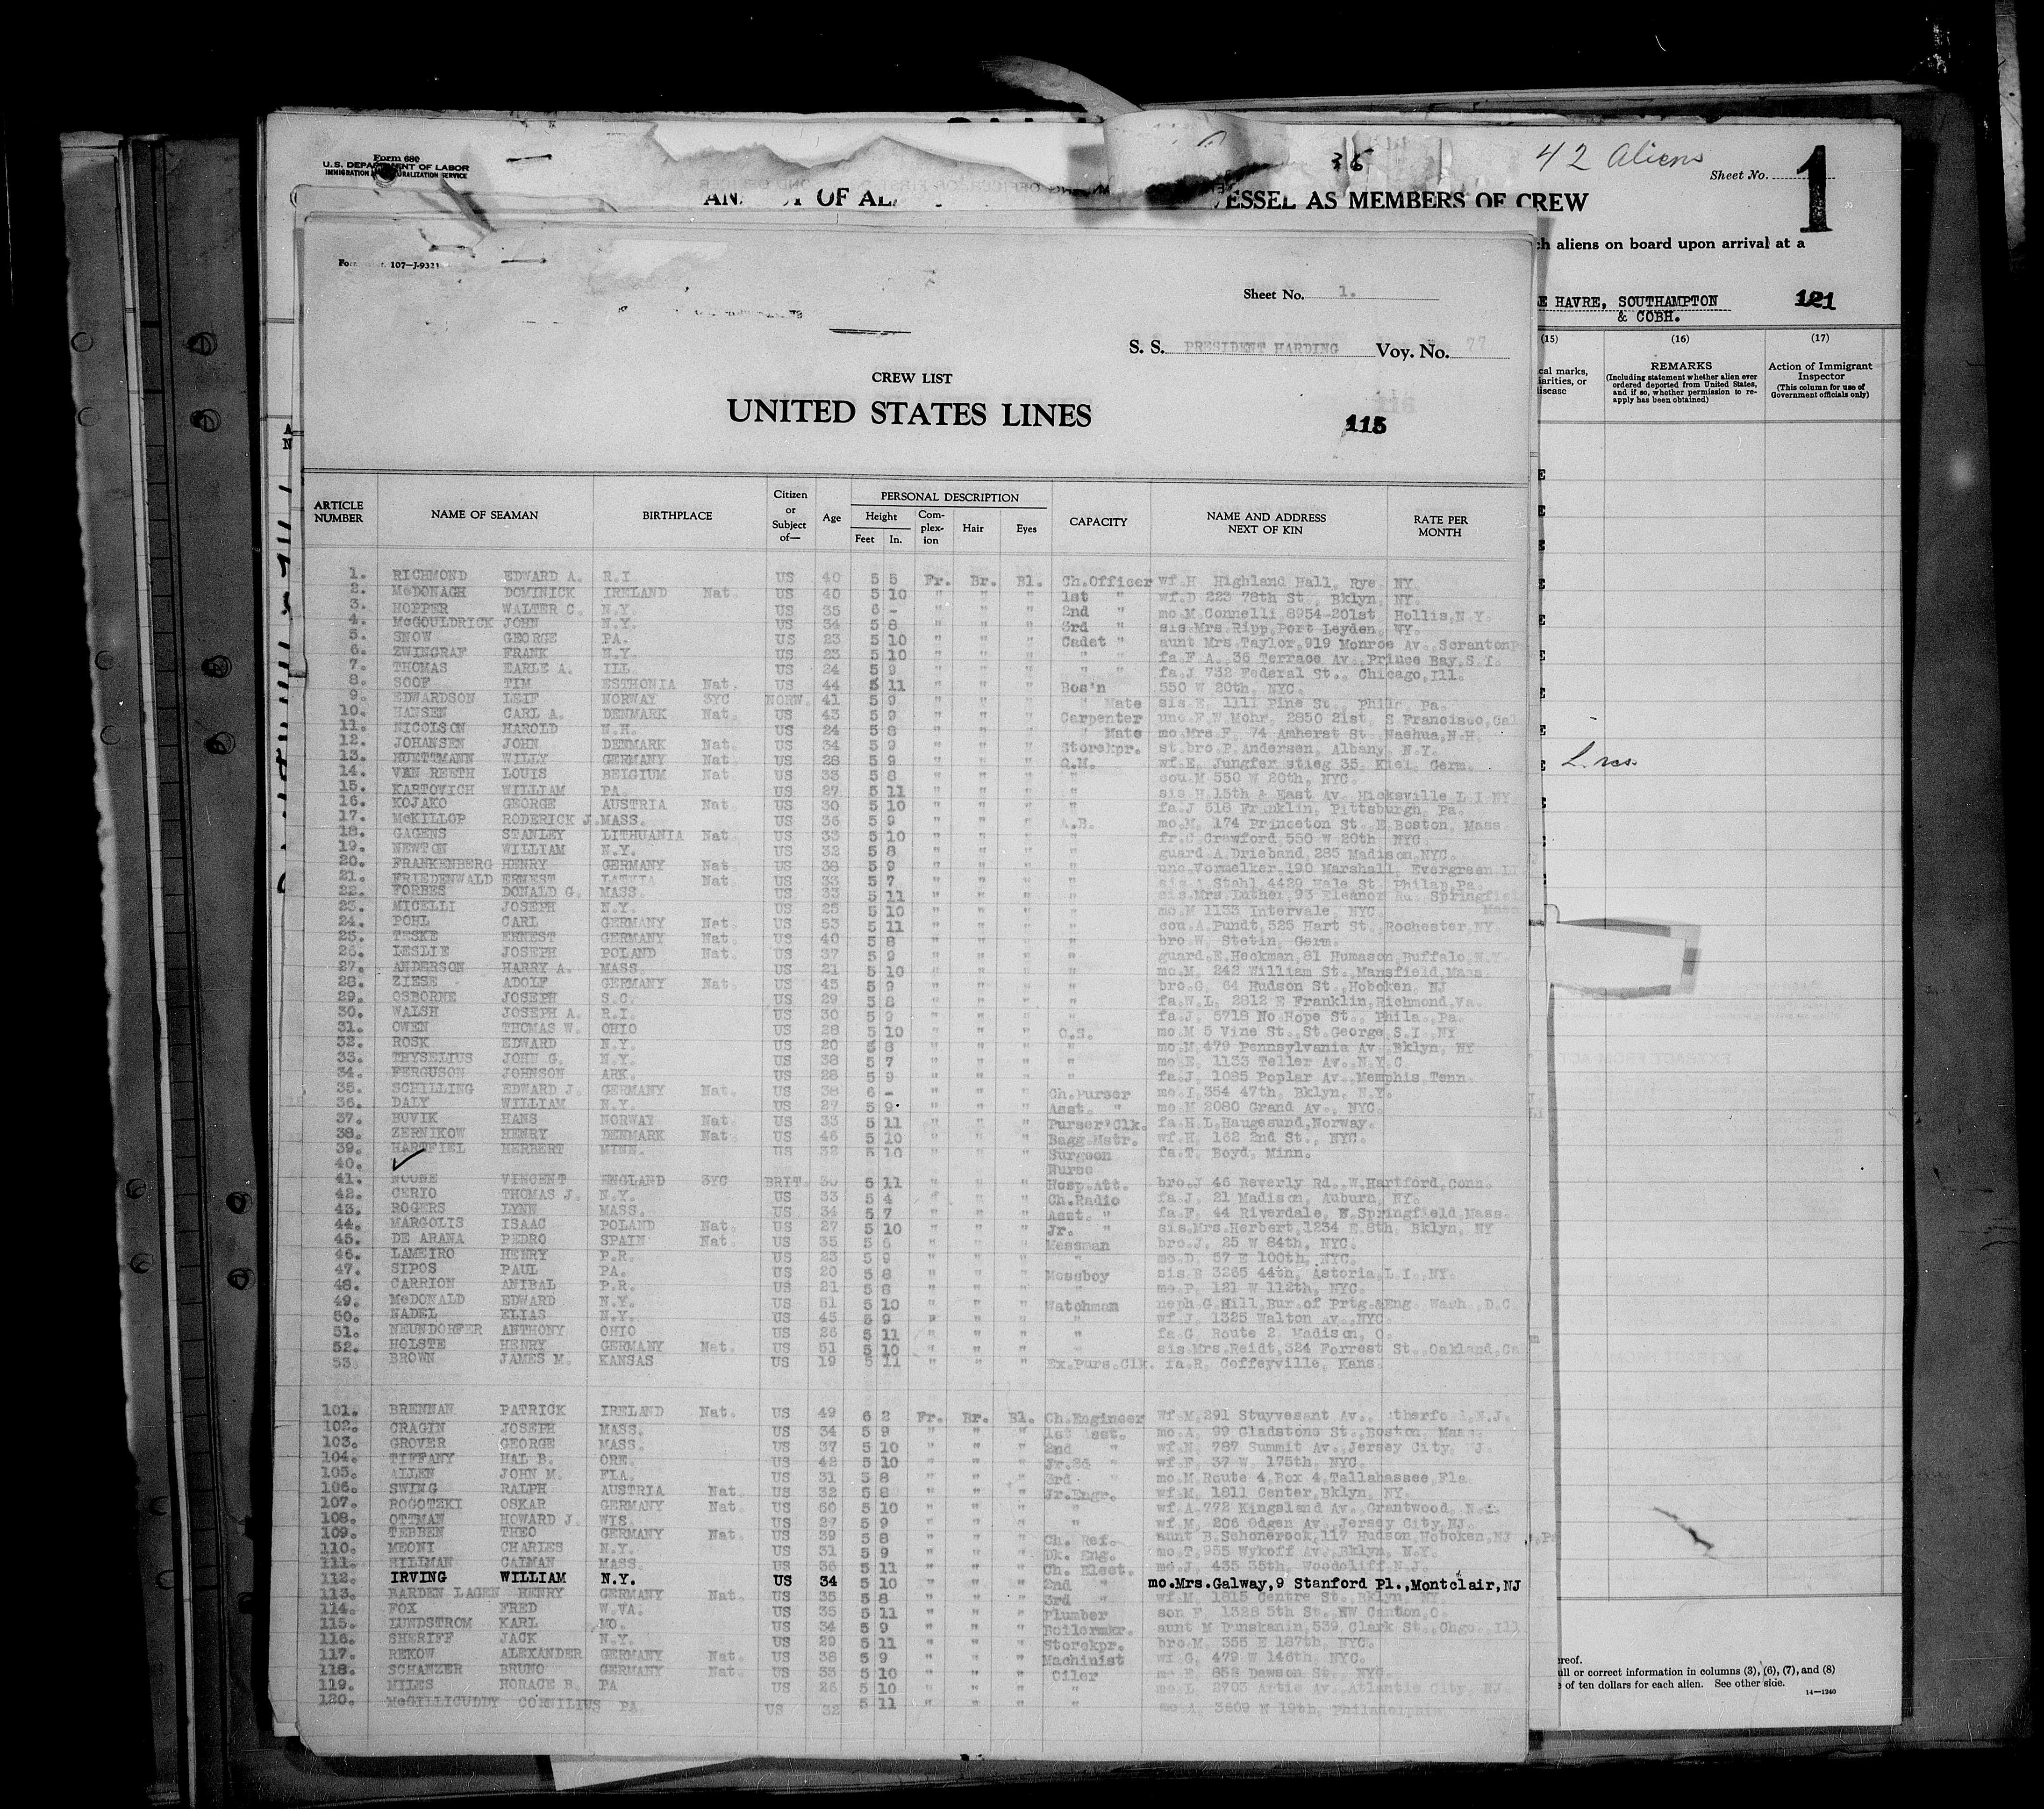 Form 680
U.S. DEPARTMENT OF LABOR
IMMIGRATION NATURALIZATION SERVICE
36
42 Aliens
Sheet No. 1
OF VESSEL AS MEMBERS OF CREW
aliens on board upon arrival at a
HAVRE, SOUTHAMPTON
& COBH.
121
(15) (16) (17)
REMARKS
(Including statement whether alien ever ordered deported from United States, and if so, whether permission to re-apply has been obtained)
Action of Immigrant Inspector
(This column for use of Government officials only)
107—J-9321
Sheet No. 1.
S. S. PRESIDENT HARDING Voy. No. 77
CREW LIST
UNITED STATES LINES
115
ARTICLE NUMBER NAME OF SEAMAN BIRTHPLACE Citizen or Subject of— Age PERSONAL DESCRIPTION Height Feet In. Complexion Hair Eyes CAPACITY NAME AND ADDRESS NEXT OF KIN RATE PER MONTH
1. RICHMOND EDWARD A. R.I. US 40 5 5 Fr. Br. Bl. Ch.Officer wf.H Highland Hall, Rye NY.
2. McDONAGH DOMINICK IRELAND Nat. US 40 5 10 " " " 1st " wf.D 223 78th St., Bklyn, NY.
3. HOPPER WALTER C. N.Y. US 35 6 - " " " 2nd " mo.M.Connelli 8954-201st Hollis,N.Y.
4. McGOULDRICK JOHN N.Y. US 34 5 8 " " " 3rd " sis.Mrs.Ripp,Port Leyden, NY.
5. SNOW GEORGE PA. US 23 5 10 " " " Cadet " aunt Mrs.Taylor,919 Monroe Av.,Scranton
6. ZWINGRAF FRANK N.Y. US 23 5 10 " " " " " fa.F A. 36 Terrace Av.,Prince Bay,S.I.
7. THOMAS EARLE A. ILL. US 24 5 9 " " " " " fa.J 732 Federal St., Chicago,Ill.
8. SOOF TIM ESTHONIA Nat. US 44 5 11 " " " Bos'n 550 W 20th, NYC.
9. EDWARDSON LEIF NORWAY 3YC NORW. 41 5 9 " " " " Mate sis.E. 1111 Pine St., Phila, Pa.
10. HANSEN CARL A. DENMARK Nat. US 43 5 9 " " " Carpenter unc.F.W.Mohr, 2850 21st, S Francisco,Cal
11. NICOLSON HAROLD N.H. US 24 5 8 " " " " Mate mo.Mrs.F. 74 Amherst St. Nashua,N.H.
12. JOHANSEN JOHN DENMARK Nat. US 34 5 9 " " " Storekpr. st.bro.P.Andersen, Albany, N.Y.
13. HUETTMANN WILLY GERMANY Nat. US 28 5 9 " " " Q.M. wf.E. Jungfer stieg 35, Kiel, Germ.
14. VAN REETH LOUIS BELGIUM Nat. US 33 5 8 " " " " cou.M 550 W 20th, NYC.
15. KARTOVICH WILLIAM PA. US 27 5 11 " " " " sis.H.15th & East Av. Hicksville L.I.NY
16. KOJAKO GEORGE AUSTRIA Nat. US 30 5 10 " " " " fa.J 518 Franklin, Pittsburgh, Pa.
17. McKILLOP RODERICK J. MASS. US 36 5 9 " " " A.B. mo.M. 174 Princeton St.,E.Boston, Mass
18. GAGENS STANLEY LITHUANIA Nat. US 33 5 10 " " " " fr.C.Crawford,550 W 20th NYC.
19. NEWTON WILLIAM N.Y. US 32 5 8 " " " " guard A.Drieband, 285 Madison,NYC.
20. FRANKENBERG HENRY GERMANY Nat US 38 5 9 " " " " unc.Vormelker 190 Marshall, Evergreen
21. FRIEDENWALD ERNEST LATVIA Nat. US 33 5 7 " " " " Stahl,4429 Wale St. Philap,Pa.
22. FORBES DONALD G. MASS. US 33 5 11 " " " " sis.Mrs.Luther,93 Eleanor Rd. Springfield Mass
23. MICELLI JOSEPH N.Y. US 25 5 10 " " " " mo.M 1133 Intervale, NYC.
24. POHL CARL GERMANY Nat. US 53 5 11 " " " " cou.A.Pundt,525 Hart St. Rochester,NY.
25. TESKE ERNEST GERMANY Nat. US 40 5 8 " " " " bro.W. Stetin, Germ.
26. LESLIE JOSEPH POLAND Nat. US 37 5 9 " " " " guard.E.Heckman,81 Humason,Buffalo,N.Y.
27. ANDERSON HARRY A. MASS US 21 5 10 " " " " mo.M. 242 William St., Mansfield,Mass.
28. ZIESE ADOLF GERMANY Nat. US 45 5 9 " " " " bro.G. 64 Hudson St., Hoboken, NJ
29. OSBORNE JOSEPH S.C. US 29 5 8 " " " " fa.W.L. 2812 E Franklin,Richmond,Va.
30. WALSH JOSEPH A. R.I. US 30 5 9 " " " " fa.J. 5718 No Hope St., Phila., Pa.
31. OWEN THOMAS W. OHIO US 28 5 10 " " " O.S. mo.M 5 Vine St., St.George,S.I. NY
32. ROSK EDWARD N.Y. US 20 5 8 " " " " mo.M.479 Pennsylvania Av Bklyn, NY
33. THYSELIUS JOHN G. N.Y. US 38 5 7 " " " " mo.E. 1133 Teller Av., N.Y.C
34. FERGUSON JOHNSON ARK. US 28 5 9 " " " " fa.J. 1085 Poplar Av.,Memphis Tenn.
35. SCHILLING EDWARD J. GERMANY Nat. US 38 6 - " " " Ch.Purser mo.I.354 47th, Bklyn, N.Y.
36. DALY WILLIAM N.Y. US 27 5 9 " " " Asst. " mo.M 2080 Grand Av., NYC.
37. HOVIK HANS NORWAY Nat US 33 5 11 " " " Purser'Clk. fa.H.L.Haugesund,Norway.
38. ZERNIKOW HENRY DENMARK Nat US 46 5 10 " " " Bagg.Mstr. wf.H. 162 2nd St., NYC.
39. HARTFIEL HERBERT MINN. US 32 5 10 " " " Surgeon fa.T. Boyd, Minn.
40. Nurse
41. NOONE VINCENT ENGLAND 3YC BRIT. 30 5 11 " " " Hosp.Att. bro.J 46 Beverly Rd.,W.Hartford,Conn.
42. CERIO THOMAS J. N.Y. US 33 5 4 " " " Ch.Radio fa.J. 21 Madison, Auburn, NY.
43. ROGERS LYNN MASS. US 34 5 7 " " " Asst. " fa.F. 44 Riverdale, W.Springfield,Mass.
44. MARGOLIS ISAAC POLAND Nat. US 27 5 10 " " " Jr. " sis.Mrs.Herbert,1234 E.8th, Bklyn, NY
45. DE ARANA PEDRO SPAIN Nat. US 35 5 6 " " " Messman bro.J. 25 W 84th, NYC.
46. LAMEIRO HENRY P.R. US 23 5 9 " " " " mo.D. 57 E 100th, NYC.
47. SIPOS PAUL PA. US 20 5 8 " " " Messboy sis.B 3265 44th, Astoria,L.I.,NY.
48. CARRION ANIBAL P.R. US 21 5 8 " " " " mo.P. 121 W 112th, NYC.
49. McDONALD EDWARD N.Y. US 51 5 10 " " " Watchman neph.G.Hill,Bur.of Prtg.&Eng. Wash.,D.C
50. NADEL ELIAS N.Y. US 45 5 9 " " " " wf.J. 1325 Walton Av.,NYC.
51. NEUNDORFER ANTHONY OHIO US 26 5 11 " " " " fa.G. Route 2, Madison, O.
52. HOLSTE HENRY GERMANY Nat. US 51 5 10 " " " " sis.Mrs.Reidt,324 Forrest St.,Oakland,Ca
53. BROWN JAMES M. KANSAS US 19 5 11 " " " Ex.Purs.Clk. fa.R. Coffeyville, Kans.
101. BRENNAN PATRICK IRELAND Nat. US 49 6 2 Fr. Br. Bl. Ch.Engineer wf.M.291 Stuyvesant Av., N.J.
102. CRAGIN JOSEPH MASS. US 34 5 9 " " " 1st Asst. mo.A. 99 Gladstone St.,Boston, Mass.
103. GROVER GEORGE MASS. US 37 5 10 " " " 2nd " wf.N. 787 Summit Av.,Jersey City, NJ.
104. TIFFANY HAL B. ORE. US 42 5 10 " " " Jr.2d " wf.F. 37 W. 175th, NYC.
105. ALLEN JOHN M. FLA. US 31 5 8 " " " 3rd " mo.M.Route 4,Box 4,Tallahassee,Fla
106. SWING RALPH AUSTRIA Nat. US 32 5 8 " " " Jr.Engr. wf.M. 1811 Center,Bklyn, NY.
107. ROGOTZKI OSKAR GERMANY Nat. US 50 5 10 " " " " wf.A-772 Kingsland Av.,Grantwood, N.J.
108. OTTMAN HOWARD J. WIS. US 27 5 9 " " " " wf.M. 206 Odgen Av., Jersey City,NJ.
109. TEBBEN THEO GERMANY Nat. US 39 5 8 " " " Ch. Ref. aunt B.Schonerock,117 Hudson,Hoboken,NJ
110. MEONI CHARLES N.Y. US 31 5 9 " " " Dk. Eng. mo.T.955 Wykoff Av.,Bklyn, N.Y.
111. HILLMAN CALMAN MASS. US 36 5 11 " " " Ch. Elect. mo.J. 435 35th, Woodcliff,N.J.
112. IRVING WILLIAM N.Y. US 34 5 10 " " " 2nd " mo.Mrs.Galway,9 Stanford Pl.,Montclair,NJ
113. BARDEN LAGEN HENRY GERMANY Nat. US 35 5 8 " " " 3rd " wf.M. 1815 Centre St., Bklyn, NY.
114. FOX FRED W.VA. US 35 5 11 " " " Plumber son F. 1328 5th St.,NW Canton,O.
115. LUNDSTROM KARL MO. US 34 5 9 " " " Boilermkr. aunt M Dunskanin,539 Clark St.,Chgo.,Ill
116. SHERIFF JACK N.Y. US 29 5 11 " " " Storekpr. bro.M. 355 E 187th, NYC.
117. REKOW ALEXANDER GERMANY Nat. US 38 5 9 " " " Machinist wf.G. 479 W 146th, NYC.
118. SCHANZER BRUNO GERMANY Nat. US 33 5 10 " " " Oiler mo.E. 852 Dawson St., NYC.
119. MILES HORACE B. PA US 26 5 10 " " " " mo.L. 2703 Artic Av.,Atlantic City, NJ.
120. McGILLICUDDY CORNILIUS PA. US 32 5 11 " " " " mo.A. 3609 N 19th, Philadelphia
L. res.
or correct information in columns (3), (6), (7), and (8)
of ten dollars for each alien. See other side.
14—1240